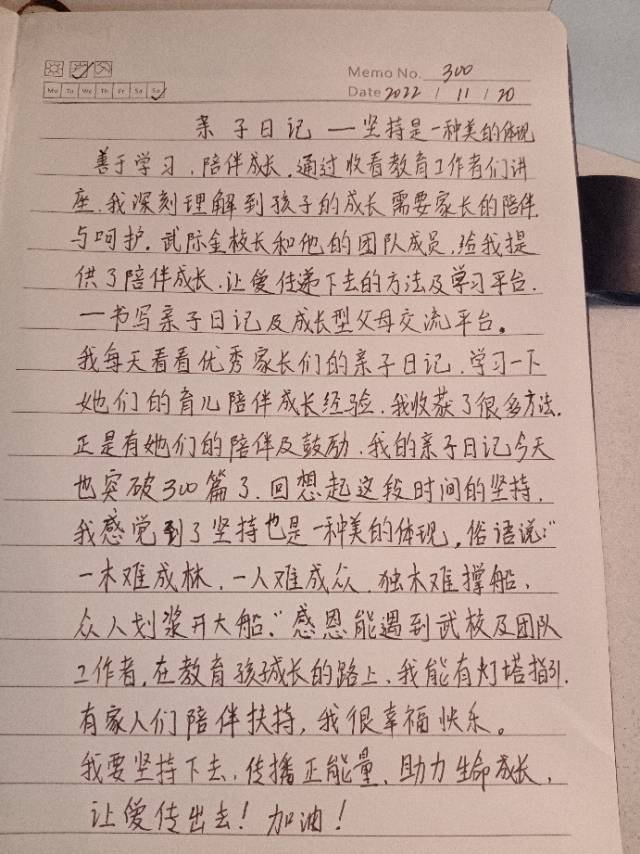 Memo No. 300
Mo Tu We Th Fr Sa Su
Date 2022 / 11 / 20
亲子日记 — 坚持是一种美的体现
善于学习，陪伴成长，通过收看教育工作者们讲
座，我深刻理解到孩子的成长需要家长的陪伴
与呵护。武际金校长和他的团队成员，给我提
供了陪伴成长，让爱传递下去的方法及学习平台，
—书写亲子日记及成长型父母交流平台。
我每天看看优秀家长们的亲子日记，学习一下
她们的育儿陪伴成长经验，我收获了很多方法，
正是有她们的陪伴及鼓励，我的亲子日记今天
也突破300篇了，回想起这段时间的坚持，
我感觉到了坚持也是一种美的体现，俗语说："
一木难成林，一人难成众，独木难撑船，
众人划浆开大船。"感恩能遇到武校及团队
工作者，在教育孩子成长的路上，我能有灯塔指引，
有家人们陪伴扶持，我很幸福快乐。
我要坚持下去，传播正能量，助力生命成长，
让爱传出去！加油！